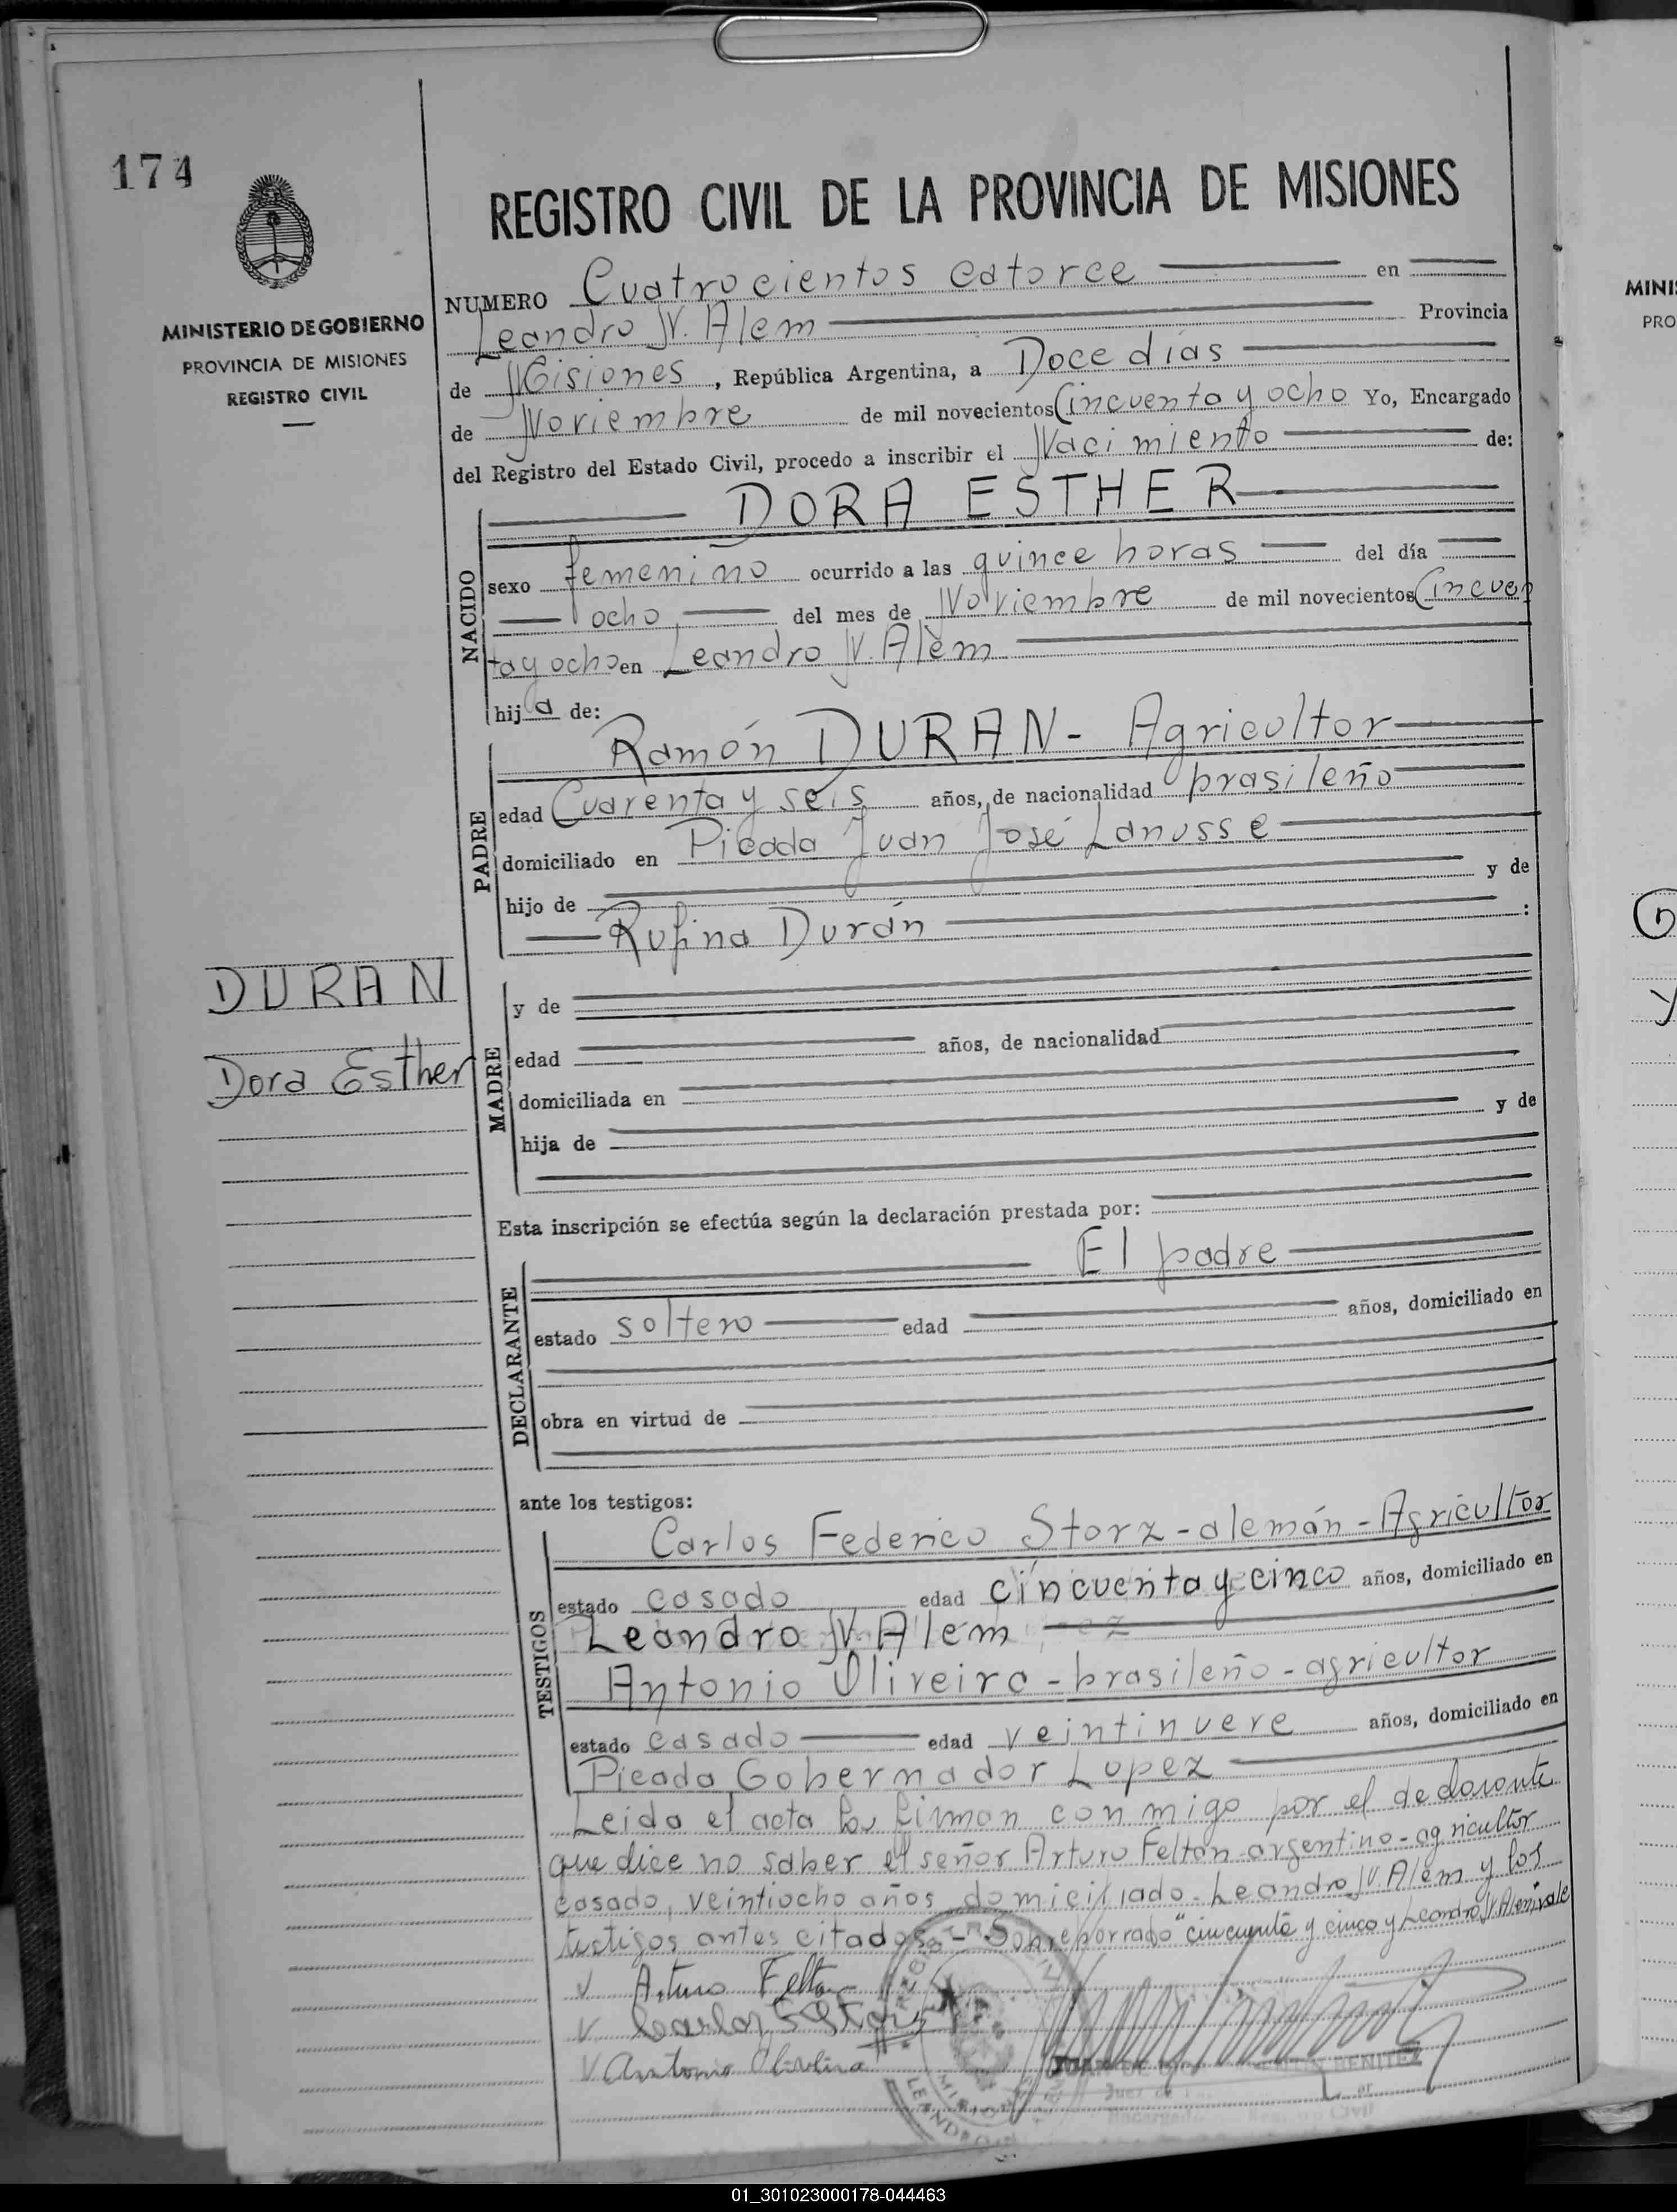 174
MINISTERIO DE GOBIERNO
PROVINCIA DE MISIONES
REGISTRO CIVIL
REGISTRO CIVIL DE LA PROVINCIA DE MISIONES
NUMERO Cuatrocientos catorce en
Leandro N. Alem Provincia
de Misiones, República Argentina, a Doce días
de Noviembre de mil novecientos Cincuenta y ocho Yo, Encargado
del Registro del Estado Civil, procedo a inscribir el Nacimiento de:
DORA ESTHER
NACIDO
sexo femenino ocurrido a las quince horas del día
ocho del mes de Noviembre de mil novecientos Cincuen
ta y ocho en Leandro N. Alem
hija de:
Ramón DURAN - Agricultor
PADRE
edad Cuarenta y seis años, de nacionalidad brasileño
domiciliado en Picada Juan José Lanusse
hijo de y de
Rufina Durán :
DURAN
Dora Esther
MADRE
y de
edad años, de nacionalidad
domiciliada en
hija de y de
Esta inscripción se efectúa según la declaración prestada por:
El padre
DECLARANTE
estado soltero edad años, domiciliado en
obra en virtud de
ante los testigos:
TESTIGOS
Carlos Federico Storz - alemán - Agricultor
estado casado edad cincuenta y cinco años, domiciliado en
Leandro N. Alem
Antonio Oliveira - brasileño - agricultor
estado casado edad veintinueve años, domiciliado en
Picada Gobernador Lopez
Leida el acta la firman conmigo por el declarante
que dice no saber el señor Arturo Felton argentino - agricultor
casado, veintiocho años domiciliado - Leandro N. Alem y los
testigos antes citados. - Sobreborrado "cincuenta y cinco y Leandro N. Alem: vale
V Arturo Felton
V. Carlos F Storz
V Antonio Oliveira
BENITEZ
Juez de
Encargado Registro Civil
LEANDRO
MINI
PRO
01_301023000178-044463